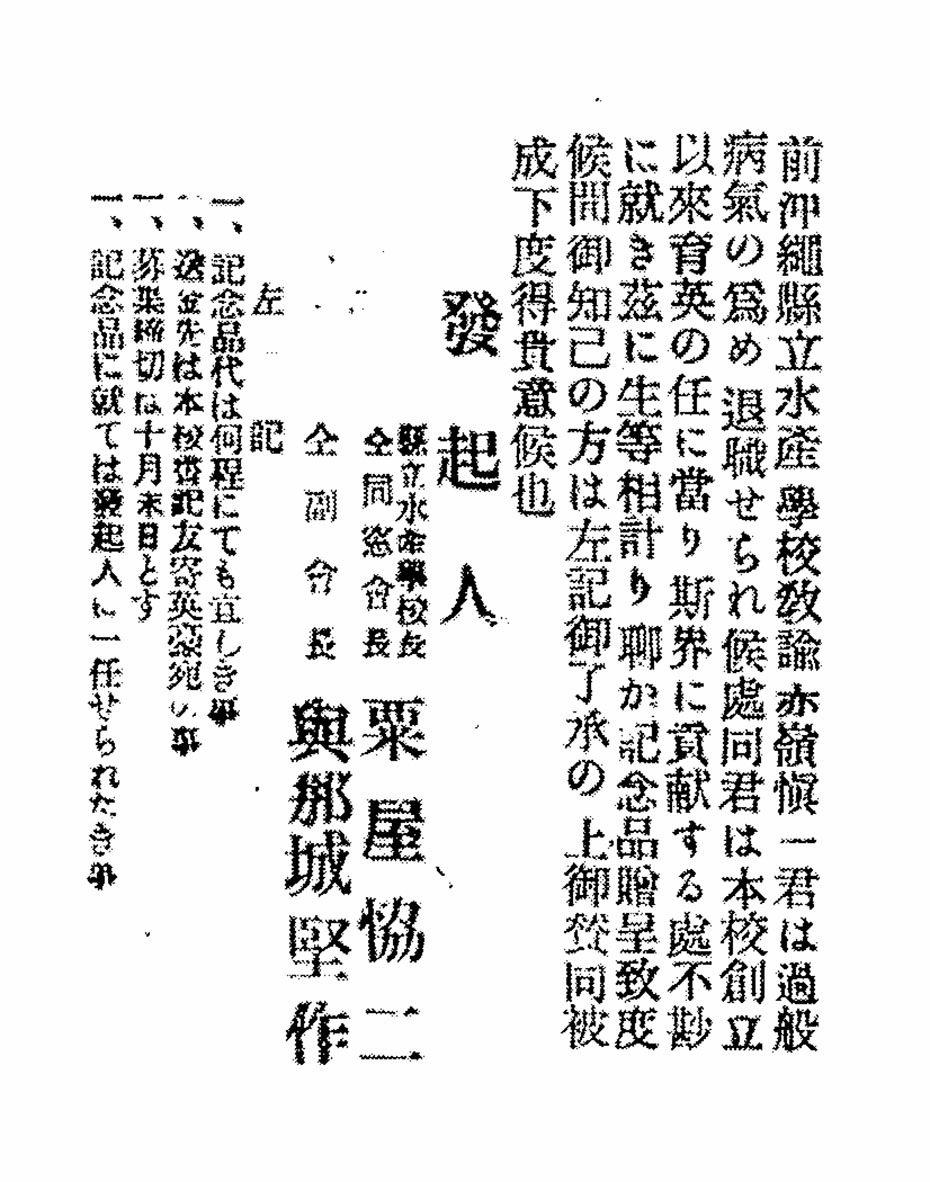 前沖繩縣立水產學校敎諭赤嶺愼一君は過般
病氣の爲め退職せられ候處同君は本校創立
以來育英の任に當り斯界に貢献する處不尠
に就き茲に生等相計り聊か記念品贈呈致度
候間御知己の方は左記御了承の上御賛同被
成下度得貴意候也
發起人
縣立水產學校長
仝同窓會長 粟屋協二
仝副會長 與那城堅作
左記
一、記念品代は何程にても宜しき事
一、送金先は本校書記友寄英彛宛の事
一、募集締切は十月末日とす
一、記念品に就ては發起人に一任せられたき事